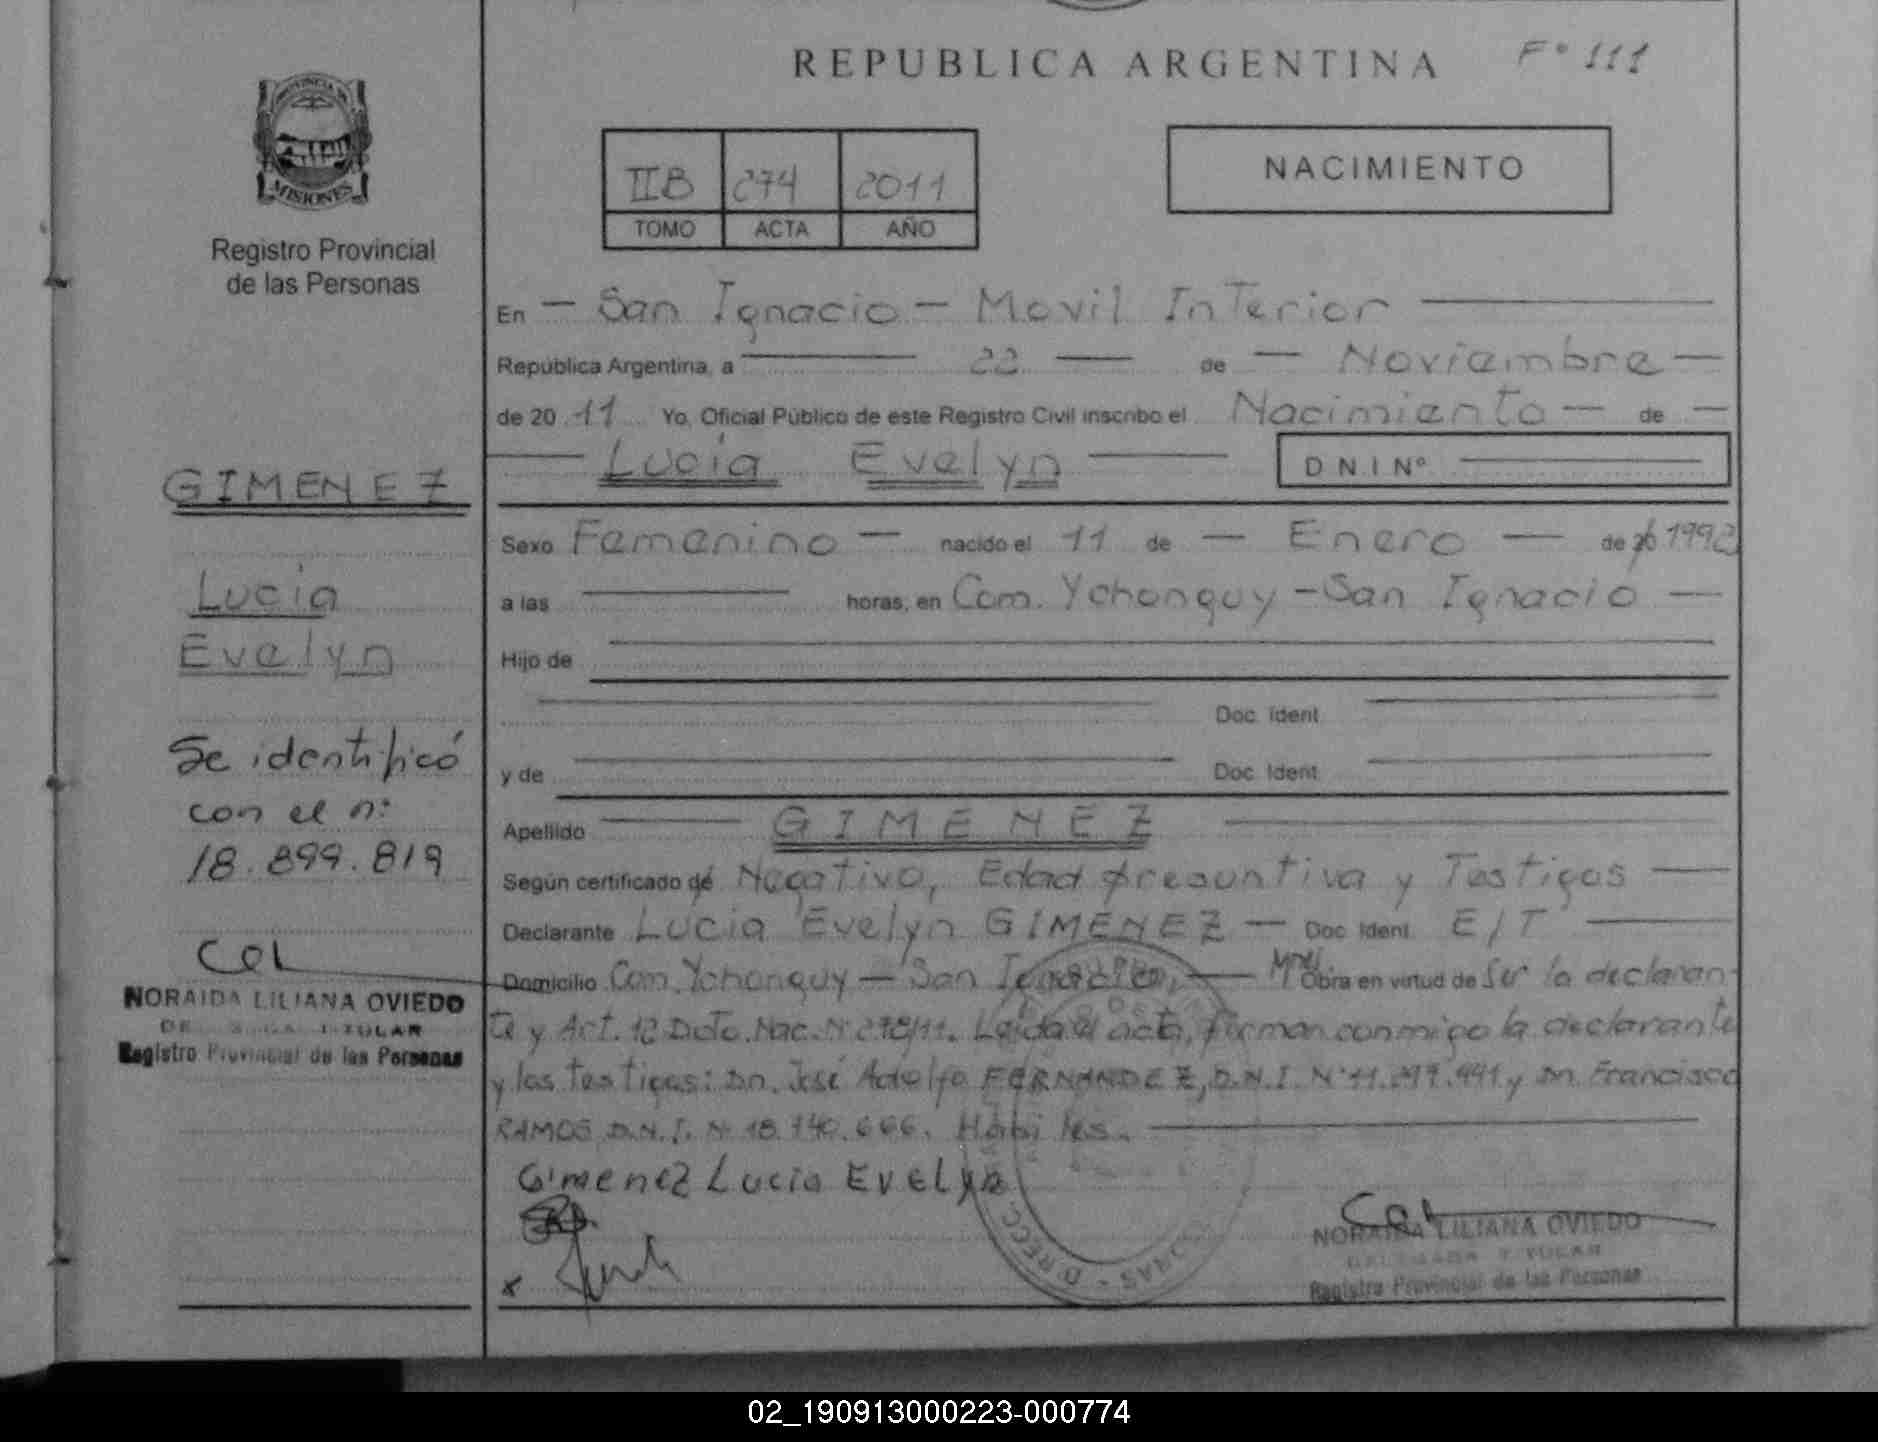 REPUBLICA ARGENTINA Fº 111
PROVINCIA DE
MISIONES
Registro Provincial
de las Personas
IIB 274 2011
TOMO ACTA AÑO
NACIMIENTO
En — San Ignacio — Movil Interior
República Argentina, a 22 — de — Noviembre —
de 20 11 Yo, Oficial Público de este Registro Civil inscribo el Nacimiento — de —
— Lucía Evelyn — D N I Nº
Sexo Femenino — nacido el 11 de — Enero — de 20 1992
a las horas, en Com. Ychonguy — San Ignacio —
Hijo de
Doc. Ident.
y de Doc. Ident.
Apellido GIMENEZ
Según certificado de Negativo, Edad presuntiva y Testigos —
Declarante Lucia Evelyn GIMENEZ — Doc. Ident. E/T
Domicilio Com. Ychonguy — San Ignacio, — Mnes Obra en virtud de Ser la declaran-
te y Art. 12 Dcto. Nac. Nº 278/11. Leída el acta, firman conmigo la declarante
y los testigos: Dn. José Adolfo FERNANDEZ, D.N.I. Nº y Dn. Francisco
RAMOS D.N.I. Nº 18.740.666. Hábiles.
Gimenez Lucia Evelyn
x
NORAIDA LILIANA OVIEDO
DELEGADA TITULAR
Registro Provincial de las Personas
GIMENEZ
Lucía
Evelyn
Se identificó
con el nº:
18.899.819
NORAIDA LILIANA OVIEDO
TITULAR
Registro Provincial de las Personas
02_190913000223-000774